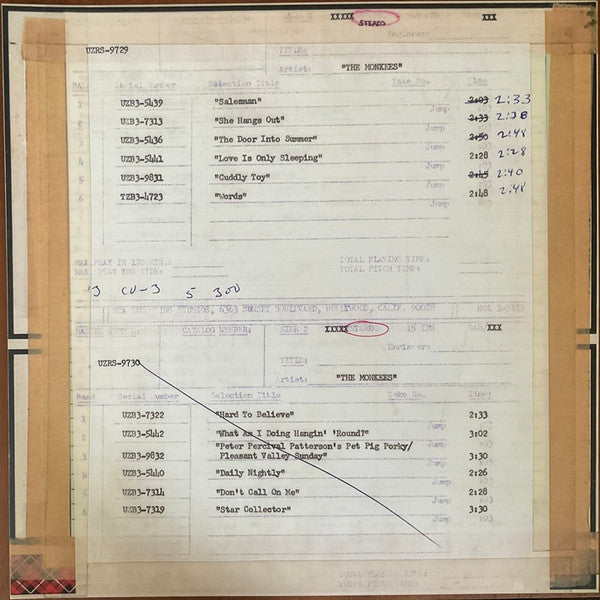 XXXXX STEREO XXX
UZRS-9729
Engineer:
TITLE:
Artist: "THE MONKEES"
Serial Number Selection Title Take No. Time
1 UZB3-5439 "Salesman" 2:03 2:33
Jump :03
UZB3-7313 "She Hangs Out" 2:33 2:38
Jump
3 UZB3-5436 "The Door Into Summer" 2:50 2:48
Jump
UZB3-5441 "Love Is Only Sleeping" 2:28 2:28
Jump
5 UZB3-9831 "Cuddly Toy" 2:45 2:40
Jump
6 TZB3-4723 "Words" 2:48 2:48
Jump :03
MAX. PEAK IN 1ST MIN.: TOTAL PLAYING TIME:
MAX. PEAK FOR SIDE: TOTAL PITCH TIME:
CU-3 5 300
RCA RECORDING STUDIOS, 6363 SUNSET BOULEVARD, HOLLYWOOD, CALIF. 90028
MASTER NUMBER: CATALOG NUMBER: SIDE 2 XXXXX STEREO 15 IPS XXX
Engineer:
UZRS-9730
TITLE:
Artist: "THE MONKEES"
Band Serial Number Selection Title Take No. Time
UZB3-7322 "Hard To Believe" 2:33
Jump :03
UZB3-5442 "What Am I Doing Hangin' 'Round?" 3:02
Jump
"Peter Percival Patterson's Pet Pig Porky/
UZB3-9832 Pleasant Valley Sunday" 3:30
Jump :03
UZB3-5440 "Daily Nightly" 2:26
Jump :03
UZB3-7314 "Don't Call On Me" 2:28
Jump :03
UZB3-7319 "Star Collector" 3:30
Jump :03
TOTAL PLAYING TIME:
TOTAL PITCH TIME: